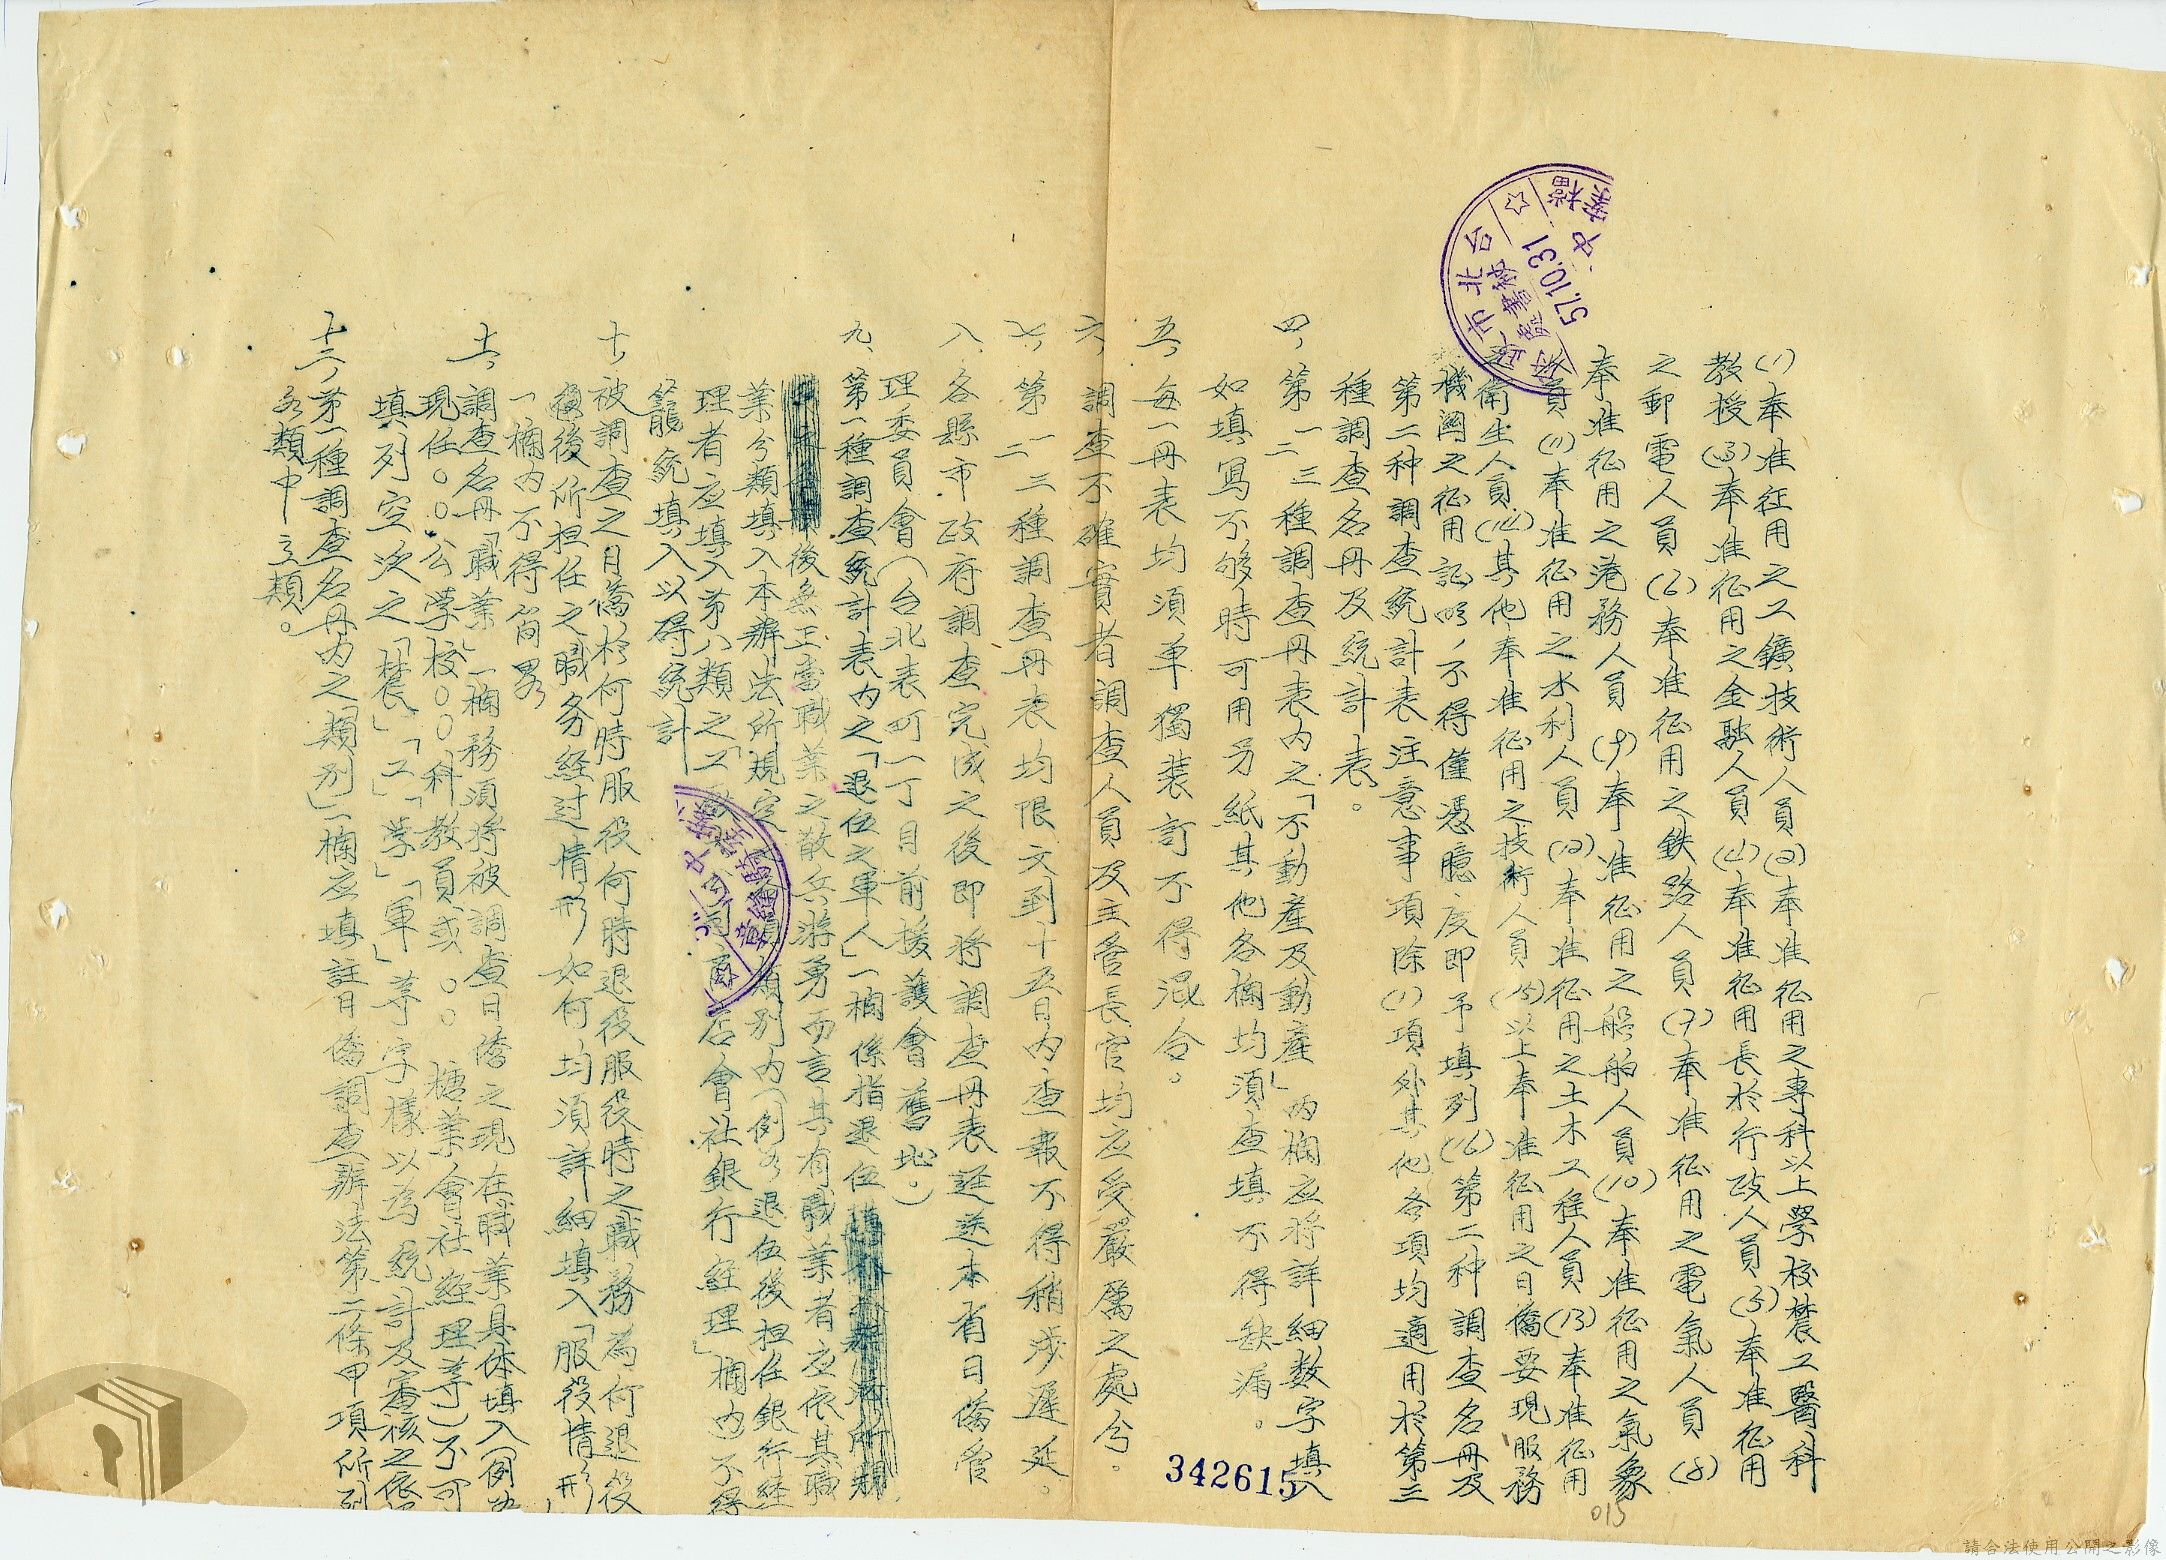 (1)奉准征用之工鑛技術人員(2)奉准征用之專科以上學校農工醫科
教授(3)奉准征用之金融人員(4)奉准征用長於行政人員(5)奉准征用
之郵電人員(6)奉准征用之鉄路人員(7)奉准征用之電氣人員(8)
奉准征用之港務人員(9)奉准征用之船舶人員(10)奉准征用之氣象
人員(11)奉准征用之水利人員(12)奉准征用之土木工程人員(13)奉准征用
衛生人員(14)其他奉准征用之技術人員(15)以上奉准征用之日僑要現服務
機関之征用証明,不得僅憑臆度即予填列(16)第二种調查名冊及
第二种調查統計表注意事項除(1)項外其他各項均適用於第三
種調查名冊及統計表。
四、第一二三種調查冊表内之「不動產及動產」兩欄应将詳細数字填入
如填写不够時可用另紙其他各欄均須查填不得缺漏。
五、每一冊表均須单獨裝訂不得混合。
六、調查不確實者調查人員及主管長官均应受嚴厲之處分。
七、第一二三種調查冊表均限文到十五日内查報不得稍涉遲延。
八、各縣市政府調查完成之後即將調查冊表逕送本省日僑管
理委員會(台北表町一丁目前援護會舊地。)
九、第一種調查統計表内之「退伍之軍人」一欄係指退伍
後無正當職業之散兵游勇而言其有職業者应依其職
業分類填入本辦法所規定 類別内(例如退伍後担任銀行経
理者应填入第八類之「工 店會社銀行経理」欄内)不得
籠統填入以碍統計
十、被調查之日僑於何時服役何時退役服役時之職務為何退役
後所担任之職务経过情形如何均須詳細填入「服役情形」
一欄内不得簡畧
十一、調查名冊「職業」一欄務須将被調查日僑之現在職業具体填入(例如
現任○○公学校○○科教員或○○糖業會社経理等)不可
填列空泛之「農」「工」「学」「軍」等字樣以為統計及審核之依据
十二、第一種調查名冊内之「類別」一欄应填註日僑調查辦法第二條甲項所列
各類中之類。
台北市政府
秘書處
57.10.31
中 檔案
342615
015
請合法使用公開之影像